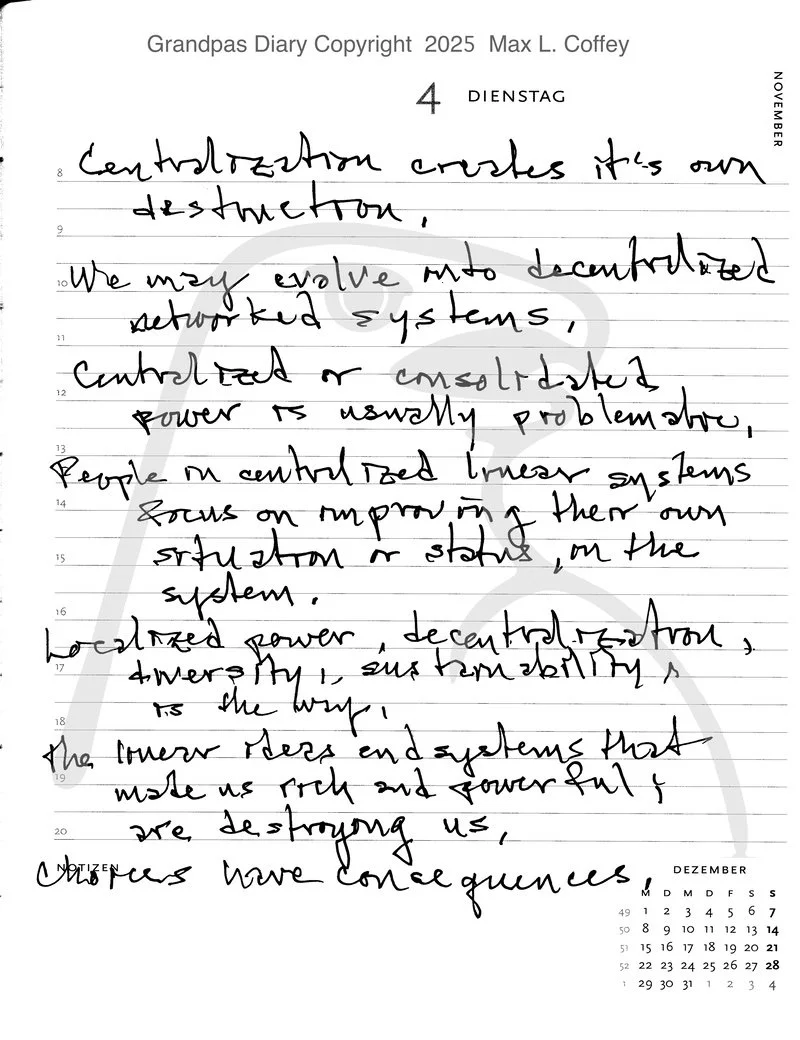 Grandpas Diary Copyright 2025 Max L. Coffey
4 DIENSTAG
NOVEMBER
8 Centralization creates it's own
destruction.
9
10 We may evolve into decentralized
networked systems,
11
Centralized or consolidated
12
power is usually problematic,
13
People in centralized linear systems
14
focus on improving their own
15 situation or status, in the
system.
16
Localized power, decentralization,
17 diversity, sustainability,
is the way,
18
the linear ideas and systems that
19
made us rich and powerful;
20 are destroying us,
NOTIZEN
Choices have consequences,
DEZEMBER
M D M D F S S
49 1 2 3 4 5 6 7
50 8 9 10 11 12 13 14
51 15 16 17 18 19 20 21
52 22 23 24 25 26 27 28
1 29 30 31 1 2 3 4